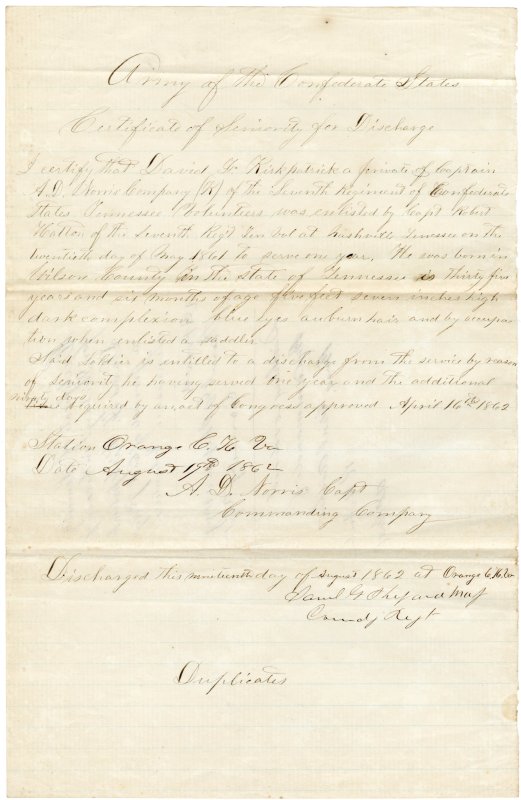 Army of the Confederate States
Certificate of Seniority for Discharge
I certify that David F. Kirkpatrick a private of Captain
A. D. Norris Company (K) of the Seventh Regiment of Confederate
States Tennessee Volunteers was enlisted by Capt Robert
Hatton of the Seventh Reg't Ten Vol at Nashville Tennessee on the
twentieth day of May 1861 to serve one year. He was born in
Wilson County in the state of Tennessee is thirty five
years and six months of age five feet seven inches high
dark complexion blue eyes auburn hair and by occupa
tion when enlisted a saddler
Said soldier is entitled to a discharge from the service by reason
of Seniority he having served one year and the additional
ninety days
required by an act of Congress approved April 16th 1862
Station Orange C. H. Va
Date August 19th 1862
A. D. Norris Capt
Commanding Company
Discharged this nineteenth day of August 1862 at Orange C. H. Va
Saml G Shepard Maj
Comdg Regt
Duplicates